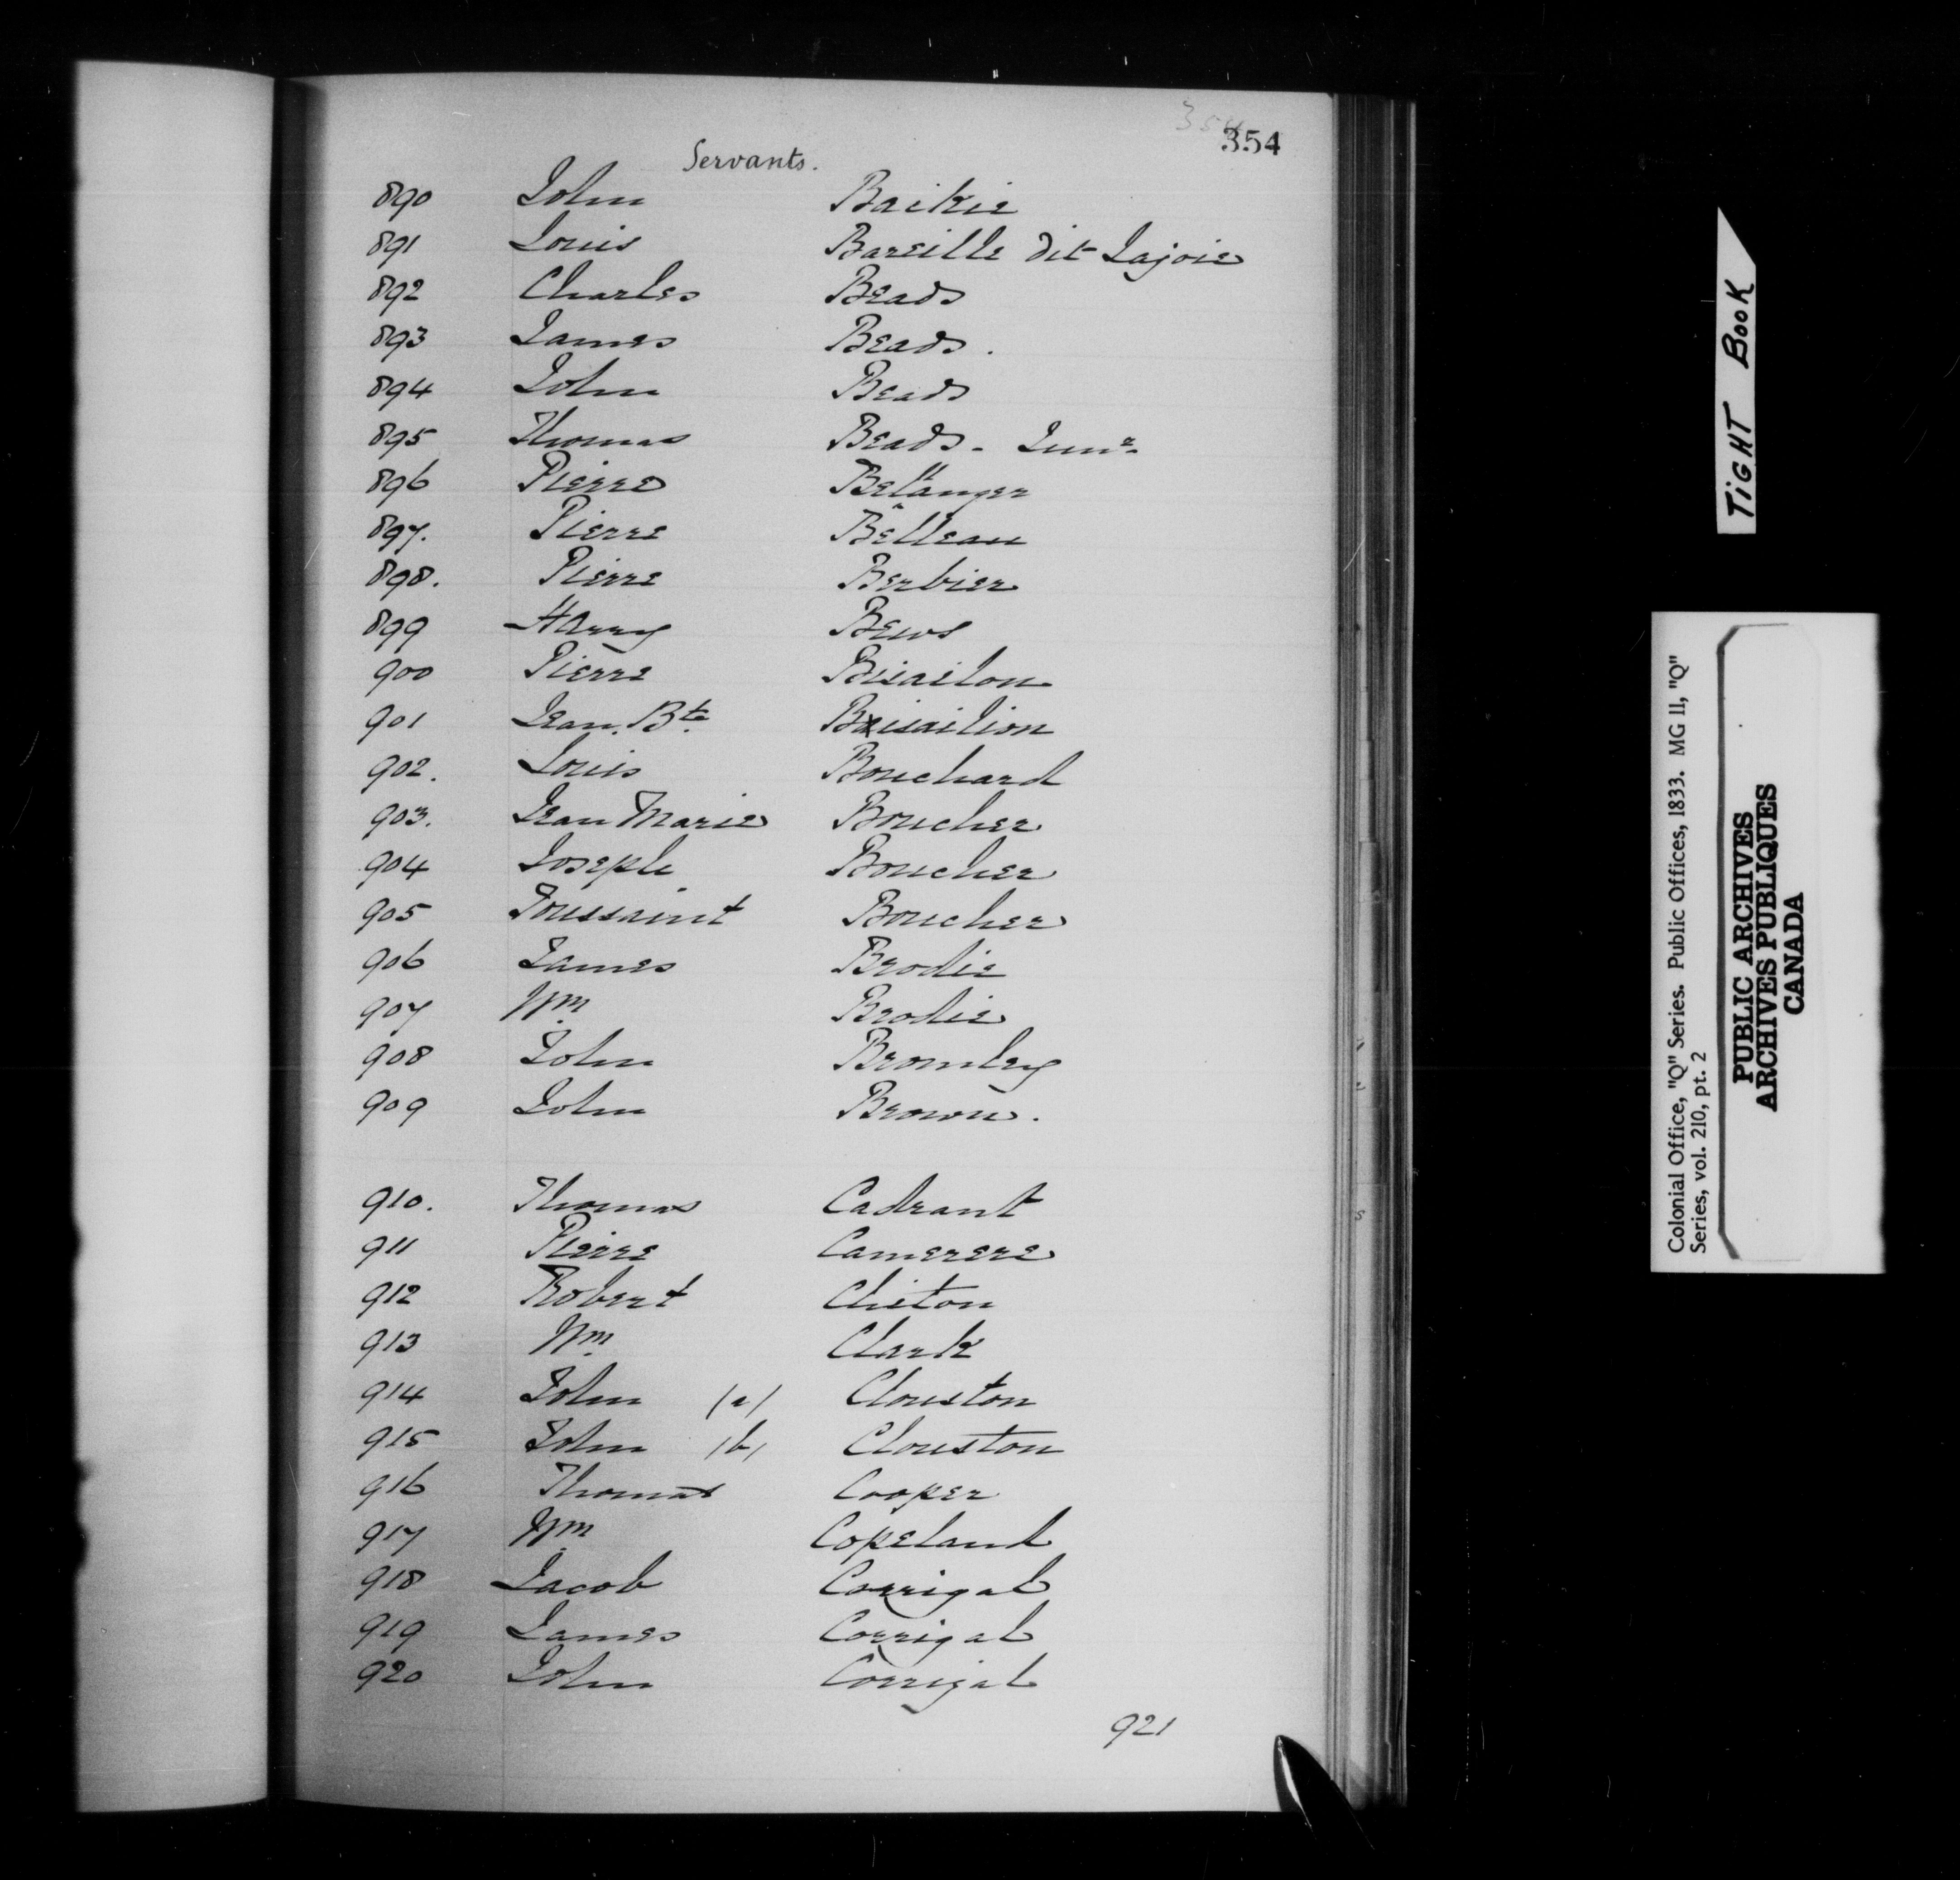 354
354
Servants.
890 John Baikie
891 Louis Bareille dit Lajoie
892 Charles Beads
893 James Beads.
894 John Beads
895 Thomas Beads - Junr.
896 Pierre Belanger
897. Pierre Belleau
898. Pierre Berbier
899 Harry Bews
900 Pierre Bisailon
901 Jean Bte. Bisailion
902. Louis Bouchard
903. Jean Marie Boucher
904 Joseph Boucher
905 Toussaint Boucher
906 James Brodie
907 Wm. Brodie
908 John Bromley
909 John Brown.
910. Thomas Cadrant
911 Pierre Camerere
912 Robert
913 Wm. Clark
914 John (a) Clouston
915 John (b) Clouston
916 Thomas Cooper
917 Wm. Copeland
918 Jacob Corrigal
919 James Corrigal
920 John Corrigal
921
TiGHT BooK
Colonial Office, "Q" Series. Public Offices, 1833. MG 11, "Q"
Series, vol. 210, pt. 2
PUBLIC ARCHIVES
ARCHIVES PUBLIQUES
CANADA